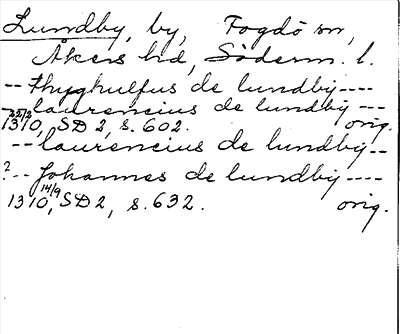 Lundby, by, Fogdö sn,
Åkers hd, Söderm. l.
-- thyghulfus de lundby ----
-- laurencius de lundby ---
22/2 1310, SD 2, s. 602. orig.
-- laurencius de lundby --
? -- Johannes de lundby ----
14/9 1310, SD 2, s. 632. orig.